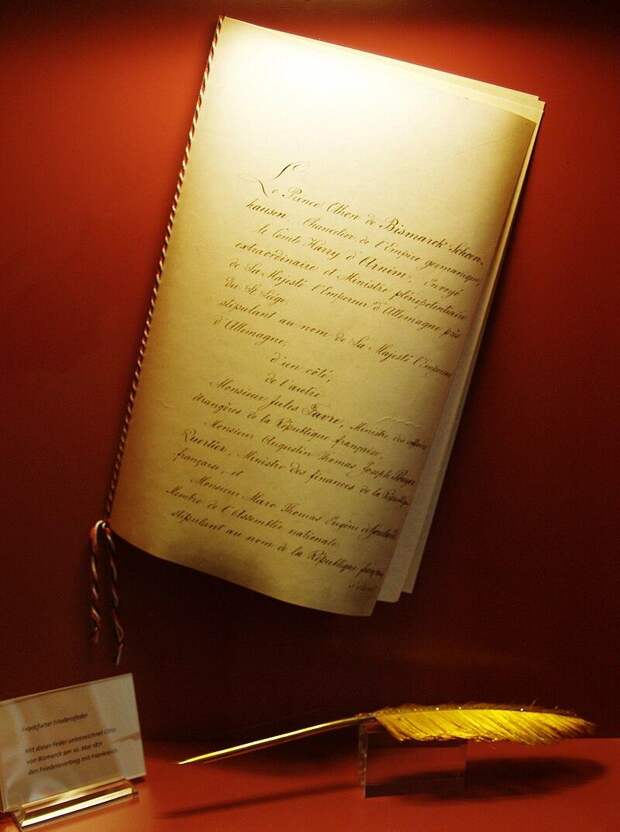 Le Prince Othon de Bismarck-Schoen-
hausen, Chancelier de l'Empire germanique,
le Comte Harry d'Arnim, Envoyé
extraordinaire et Ministre plénipotentiaire
de Sa Majesté l'Empereur d'Allemagne près
du St Siége
stipulant au nom de Sa Majesté l'Empereur
d'Allemagne,
d'un côté,
de l'autre
Monsieur Jules Favre, Ministre des affaires
étrangères de la République française,
Monsieur Augustin Thomas Joseph Pouyer-
Quertier, Ministre des finances de la République
française, et
Monsieur Marc Thomas Eugène de Goulard
Membre de l'Assemblée nationale
stipulant au nom de la République française
Frankfurter Friedensfeder
Mit dieser Feder unterzeichnet Otto
von Bismarck am 10. Mai 1871
den Friedensvertrag mit Frankreich.